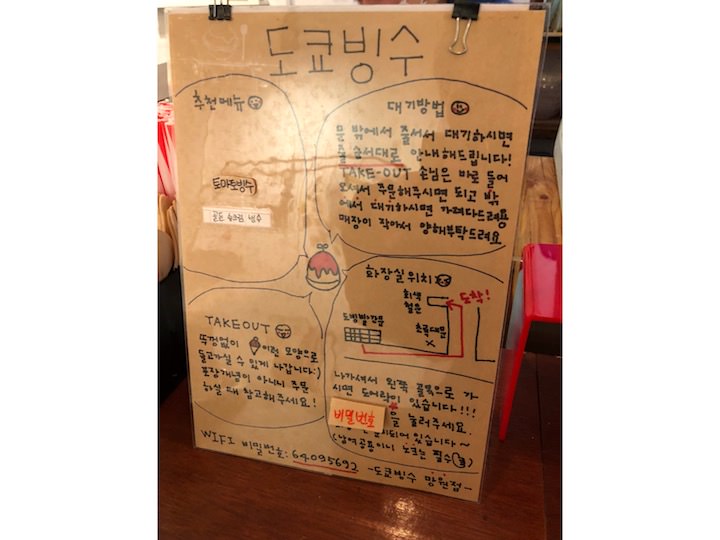 도쿄빙수
추천메뉴
토마토빙수
대기방법
문 밖에서 줄서서 대기하시면
줄 순서대로 안내해드립니다!
TAKE-OUT 손님은 바로 들어
오셔서 주문해주시면 되고 밖
에서 대기하시면 가져다드려용
매장이 작아서 양해부탁드려요
화장실위치
회색
철문
도착!
도빙빨간문
초록대문
X
TAKEOUT
뚜껑없이 이런 모양으로
들고가실 수 있게 나갑니다:)
포장개념이 아니니 주문
하실 때 참고해주세요!
나가셔서 왼쪽 골목으로 가
시면 도어락이 있습니다!!!
비밀번호 을 눌러주세요.
되어있습니다~
(남여공용이니 노크는 필수)
WIFI 비밀번호: 64095692
-도쿄빙수 망원점-